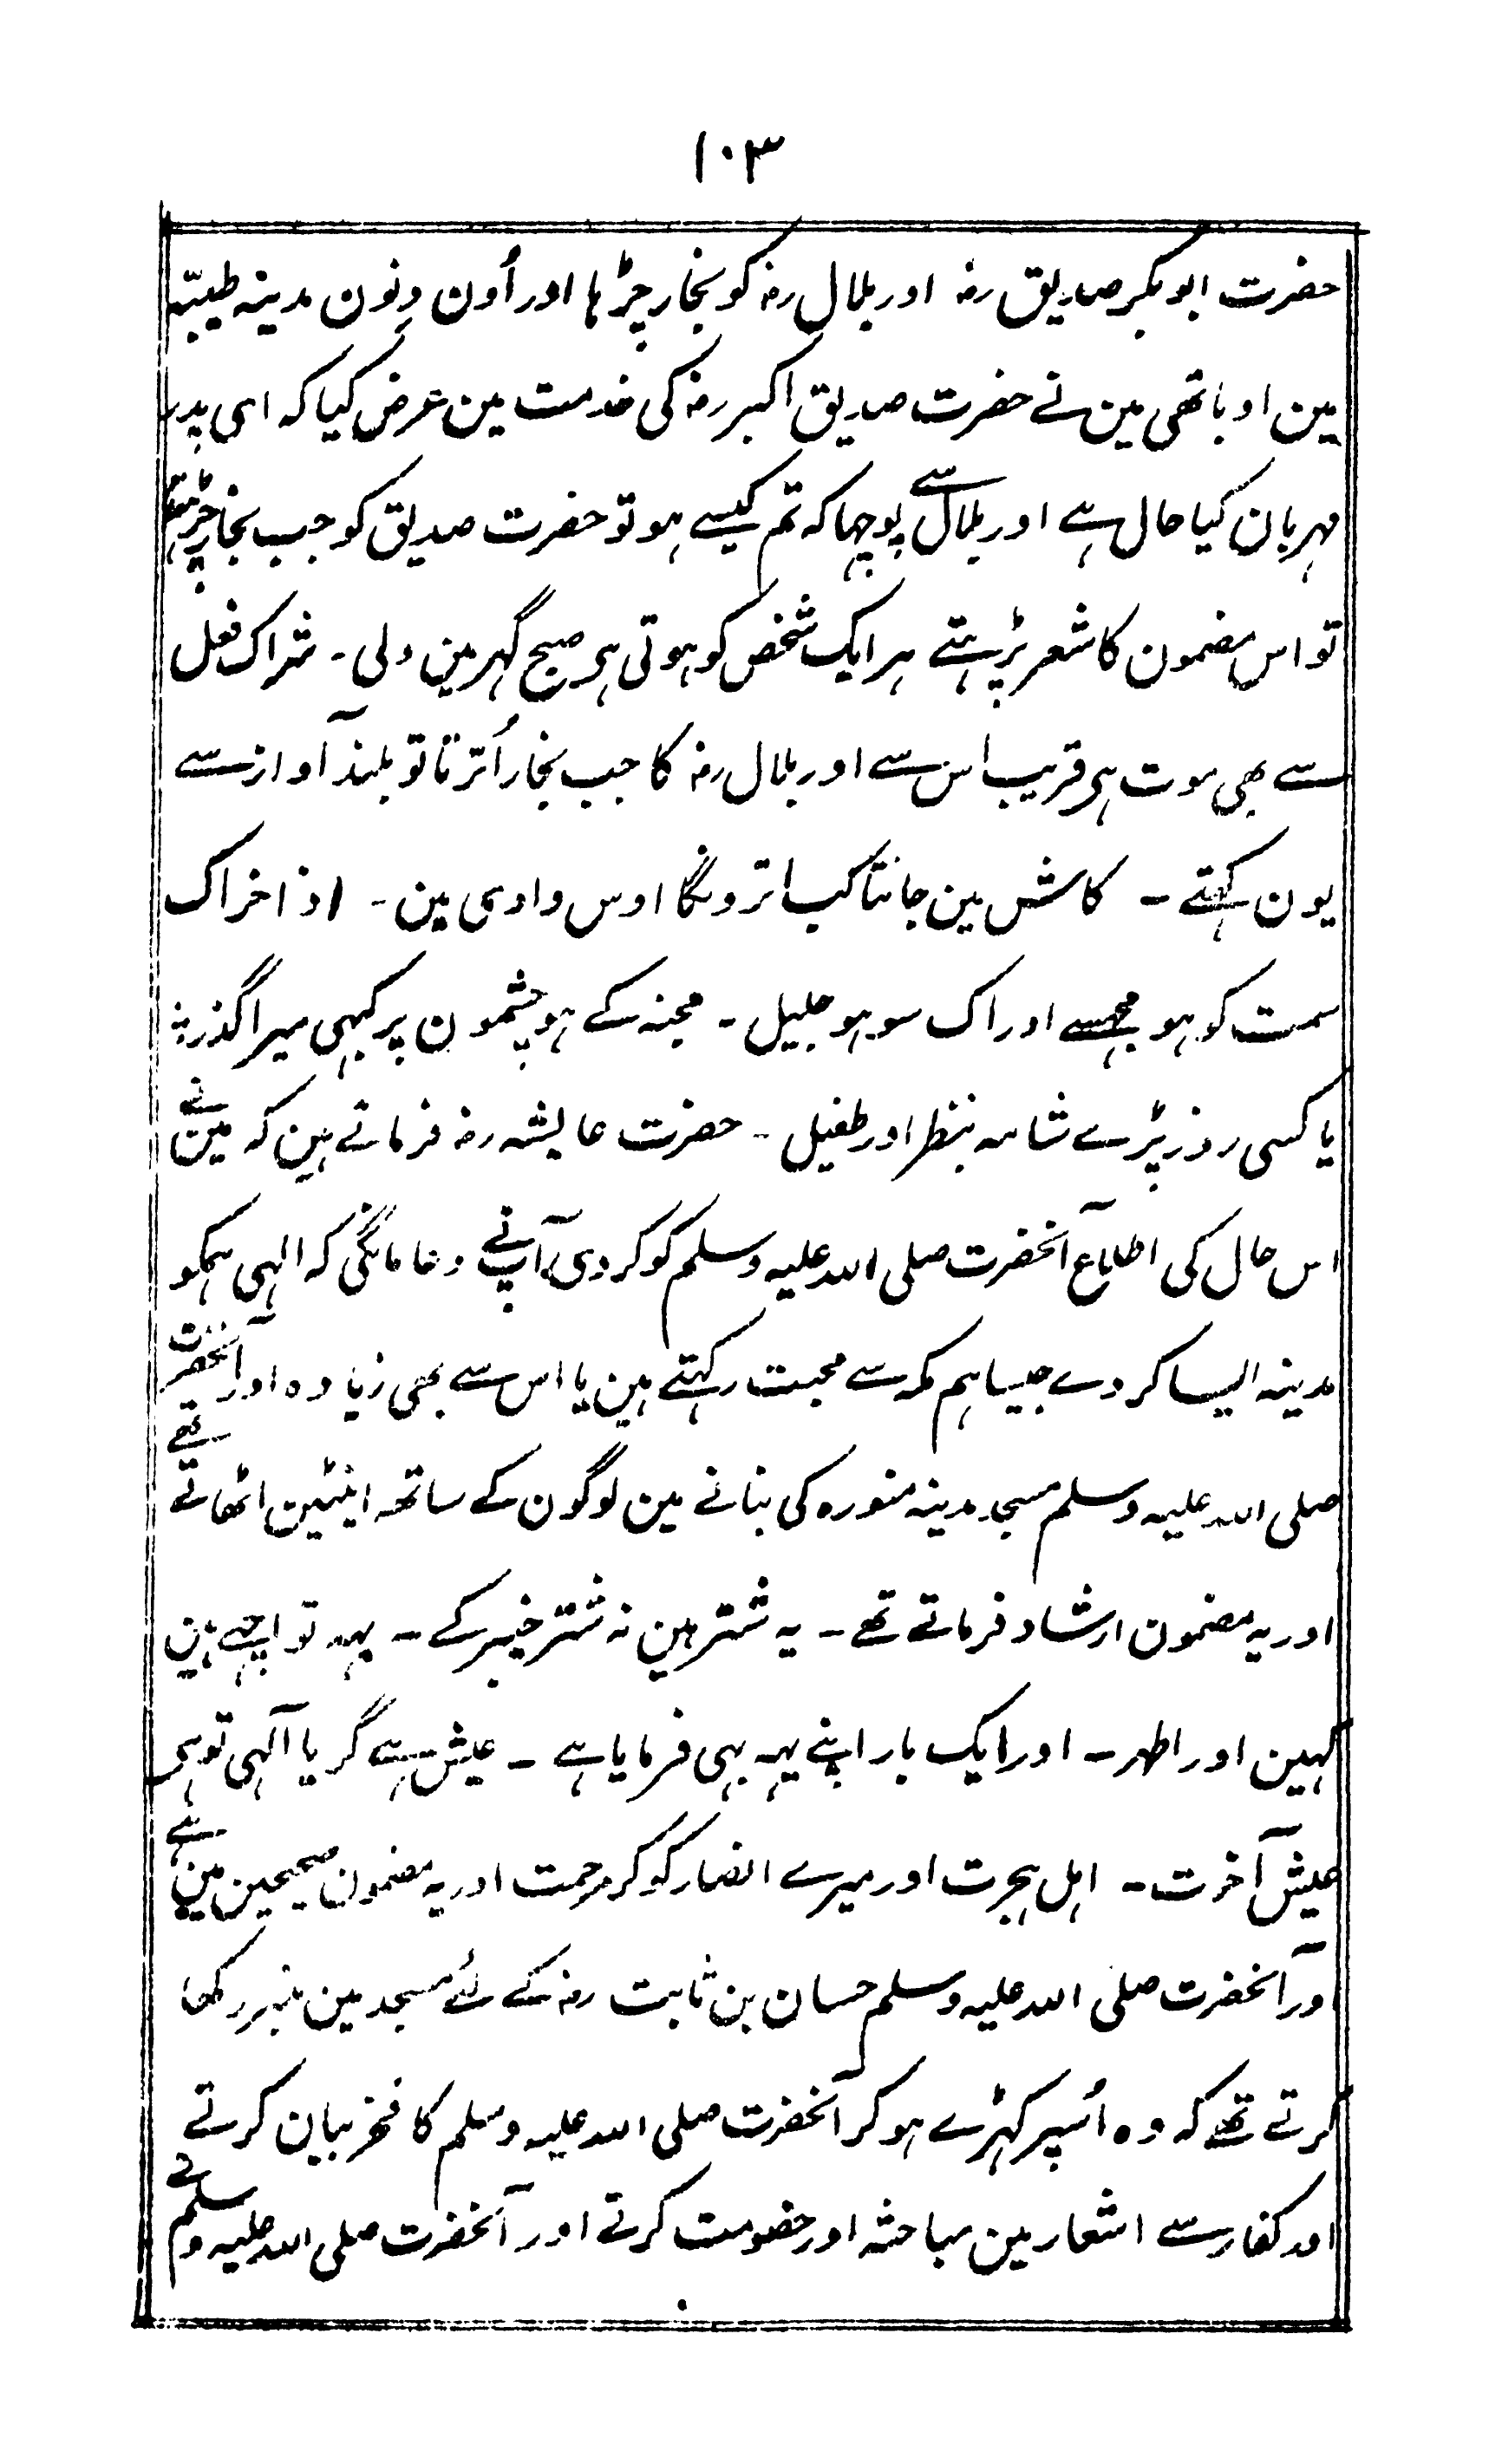 ۱۰۳
حضرت ابوبکر صدیق رضہ اور بلال رضہ کو بخار چڑہا اور اُون دِنون مدینہ طیبّہ
مین اوباتھی مین نے حضرت صدیق اکبر رضہ کی خدمت مین عرض کیا کہ ای پدر
مہربان کیا حال ہے اور بلال سے پوچہا کہ تم کیسے ہو تو حضرت صدیق کو جب بخار چڑہتا
تو اس مضمون کا شعر پڑہتے ہر ایک شخص کو ہوتی ہی صبح گہر مین ولی ۔ شراک نعل
سے بھی موت ہی قریب اس سے اور بلال رضہ کا جب بخار اُترتا تو بلند آواز سے
یون کہتے ۔ کاش مین جانتا کب اترونگا اوس وادی مین ۔ اذاخر اک
سمت کو ہو مجہسے اور اک سو ہو جلیل ۔ مجنہ کے ہو چشمون پر کبہی میرا گذر
یا کسی روز پڑے شامہ بنظر اور طفیل ۔ حضرت عایشہ رضہ فرماتے ہین کہ مین نے
اس حال کی اطلاع آنحضرت صلی اللہ علیہ وسلم کو کر دی آپ نے دعا مانگی کہ الٰہی ہمکو
مدینہ ایسا کر دے جیسا ہم مکہ سے محبت رکہتے ہین یا اس سے بھی زیادہ اور آنحضرت
صلی اللہ علیہ وسلم مسجد مدینہ منورہ کی بنانے مین لوگون کے ساتھہ اینٹین اٹھاتے تھے
اور یہ مضمون ارشاد فرماتے تھے ۔ یہ شتر ہین نہ شتر خیبر کے ۔ یہہ تو اچہے ہین
کہین اور اطہر ۔ اور ایک بار اپنے یہہ بہی فرمایا ہے ۔ عیش ہے گر یا آلہی تو ہی
عیش آخرت ۔ اہل ہجرت اور میرے انصار کو کر مرحمت اور یہ مضمون صحیحین مین ہے
اور آنحضرت صلی اللہ علیہ وسلم حسان بن ثابت رضہ کے لئے مسجد مین منبر رکھا
کرتے تھے کہ وہ اُسپر کہڑے ہو کر آنحضرت صلی اللہ علیہ وسلم کا فخر بیان کرتے
اور کفار سے اشعار مین مباحثہ اور خصومت کرتے اور آنحضرت صلی اللہ علیہ وسلم نے